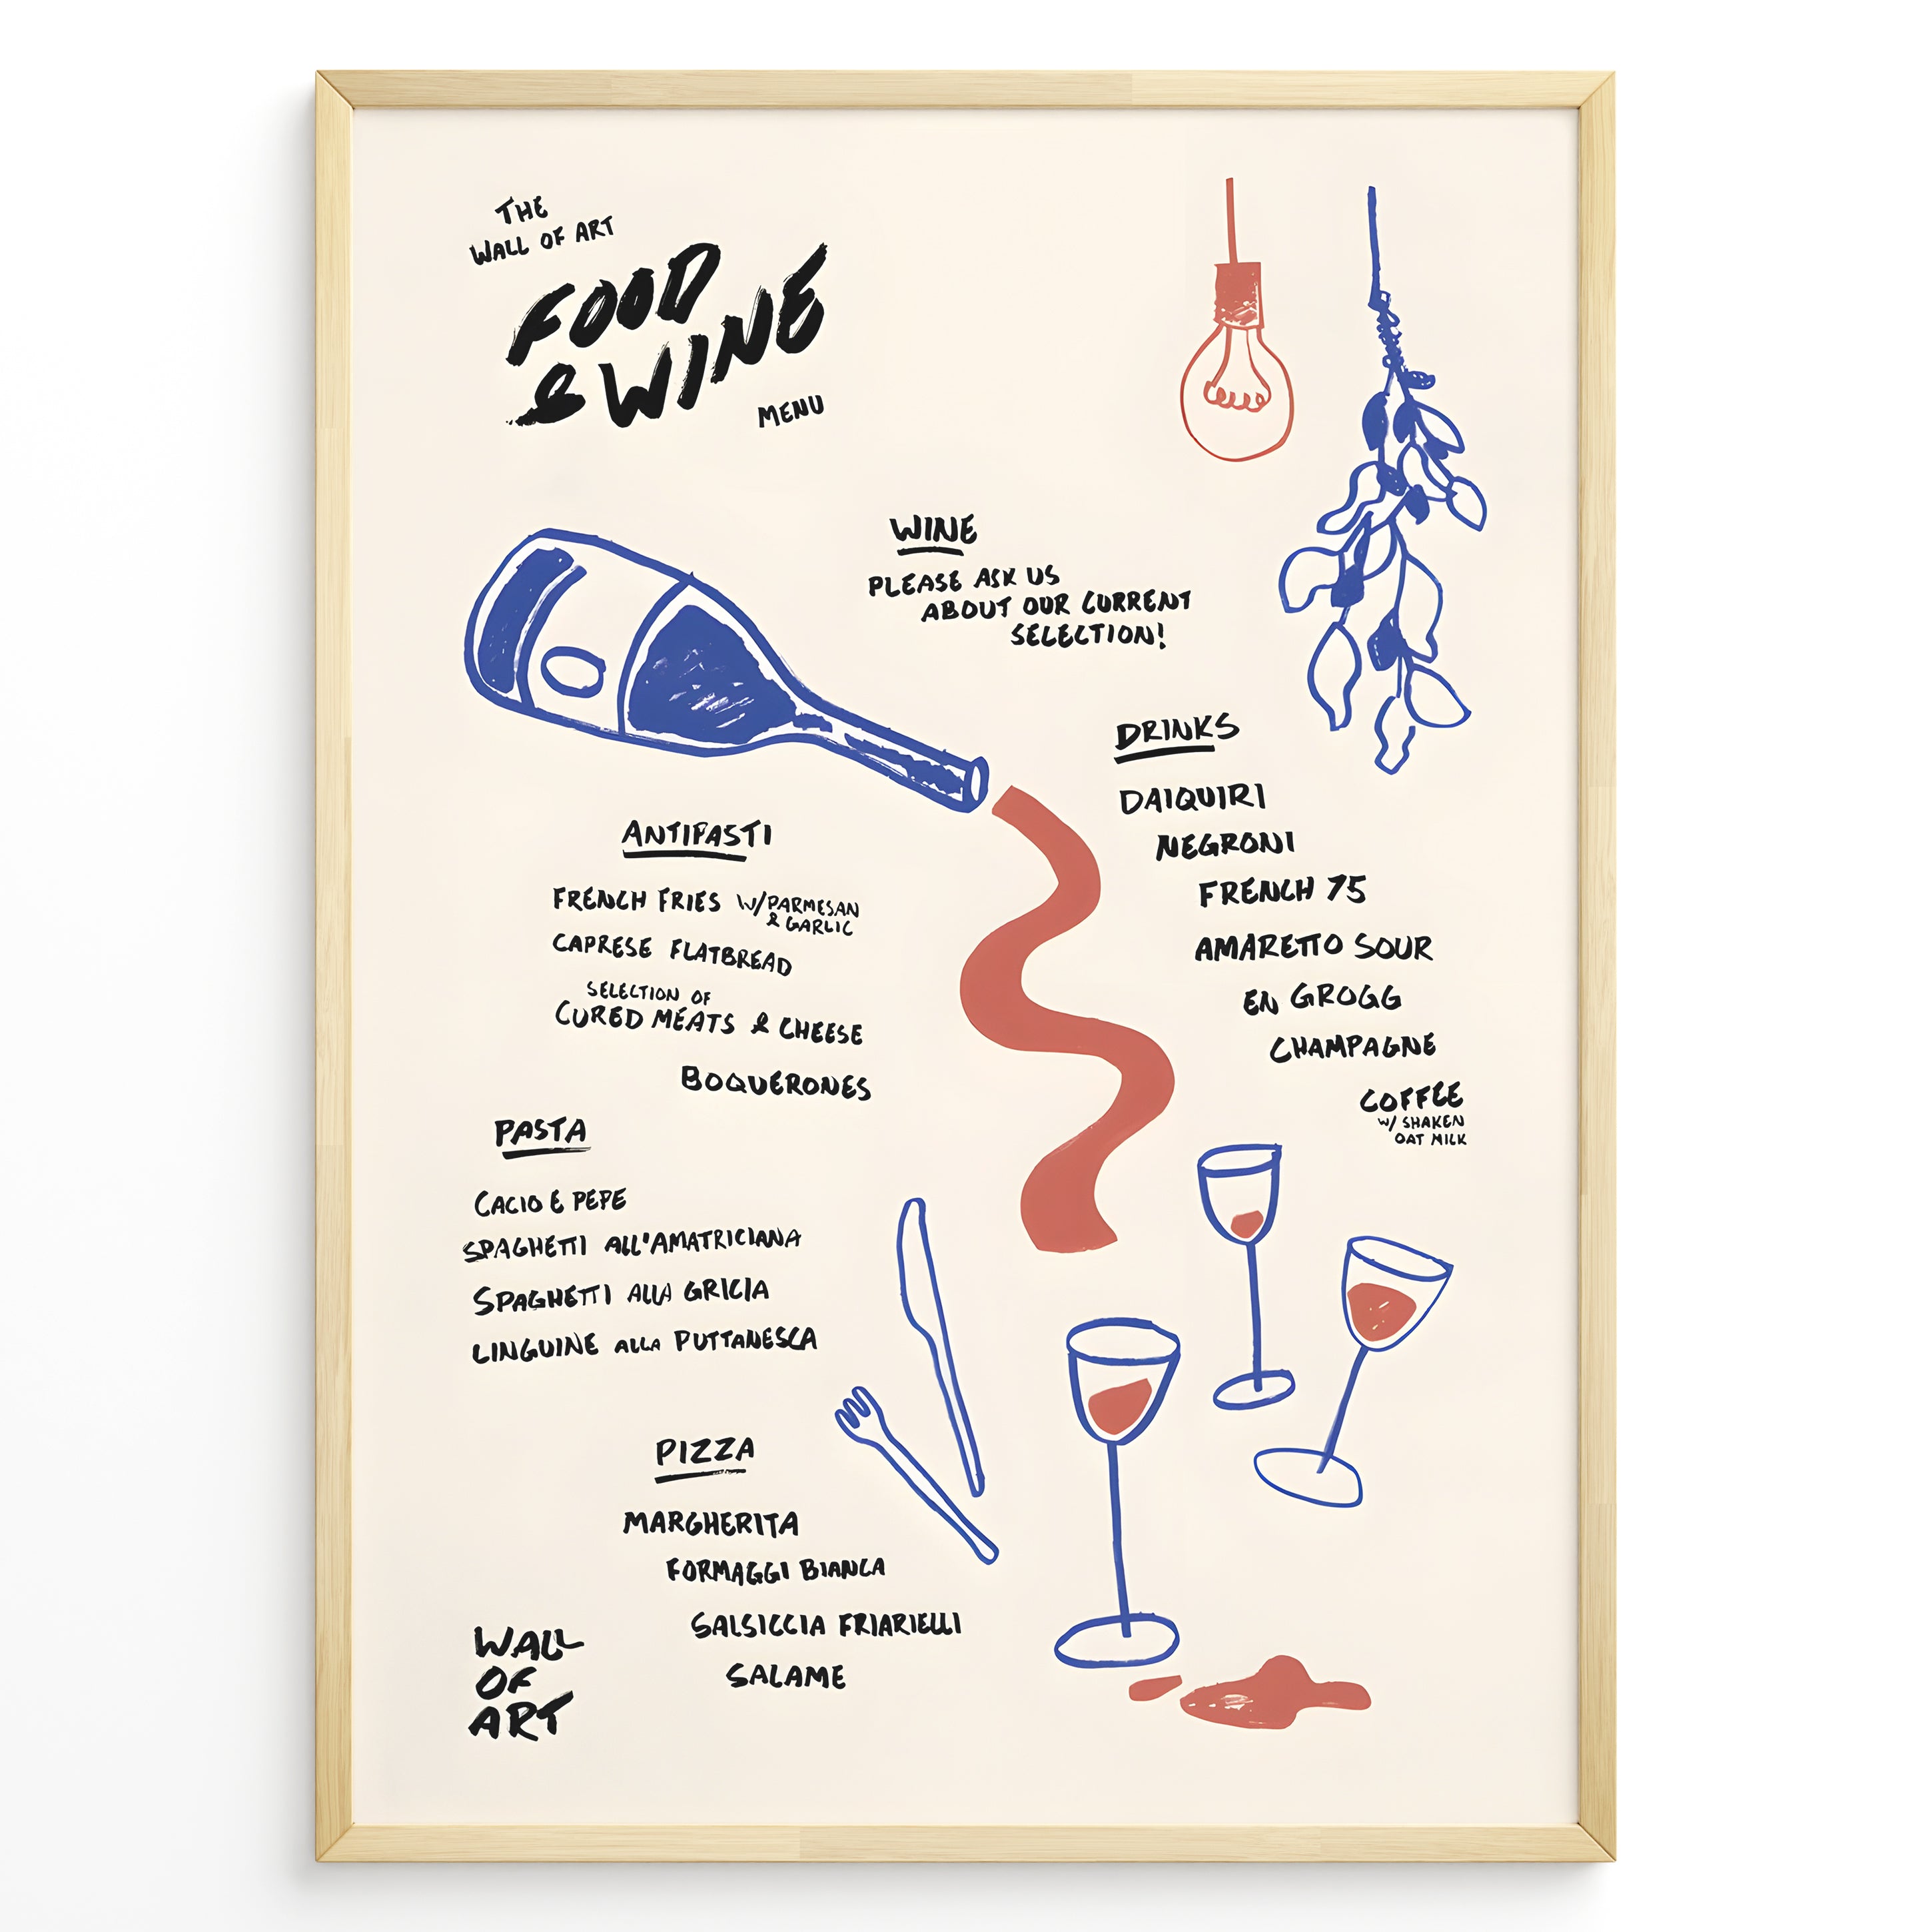 THE
WALL OF ART
FOOD
& WINE
MENU
WINE
PLEASE ASK US
ABOUT OUR CURRENT
SELECTION!
DRINKS
DAIQUIRI
NEGRONI
FRENCH 75
AMARETTO SOUR
EN GROGG
CHAMPAGNE
COFFEE
W/ SHAKEN
OAT MILK
ANTIPASTI
FRENCH FRIES W/ PARMESAN
& GARLIC
CAPRESE FLATBREAD
SELECTION OF
CURED MEATS & CHEESE
BOQUERONES
PASTA
CACIO E PEPE
SPAGHETTI ALL'AMATRICIANA
SPAGHETTI ALLA GRICIA
LINGUINE ALLA PUTTANESCA
PIZZA
MARGHERITA
FORMAGGI BIANCA
SALSICCIA FRIARIELLI
SALAME
WALL
OF
ART